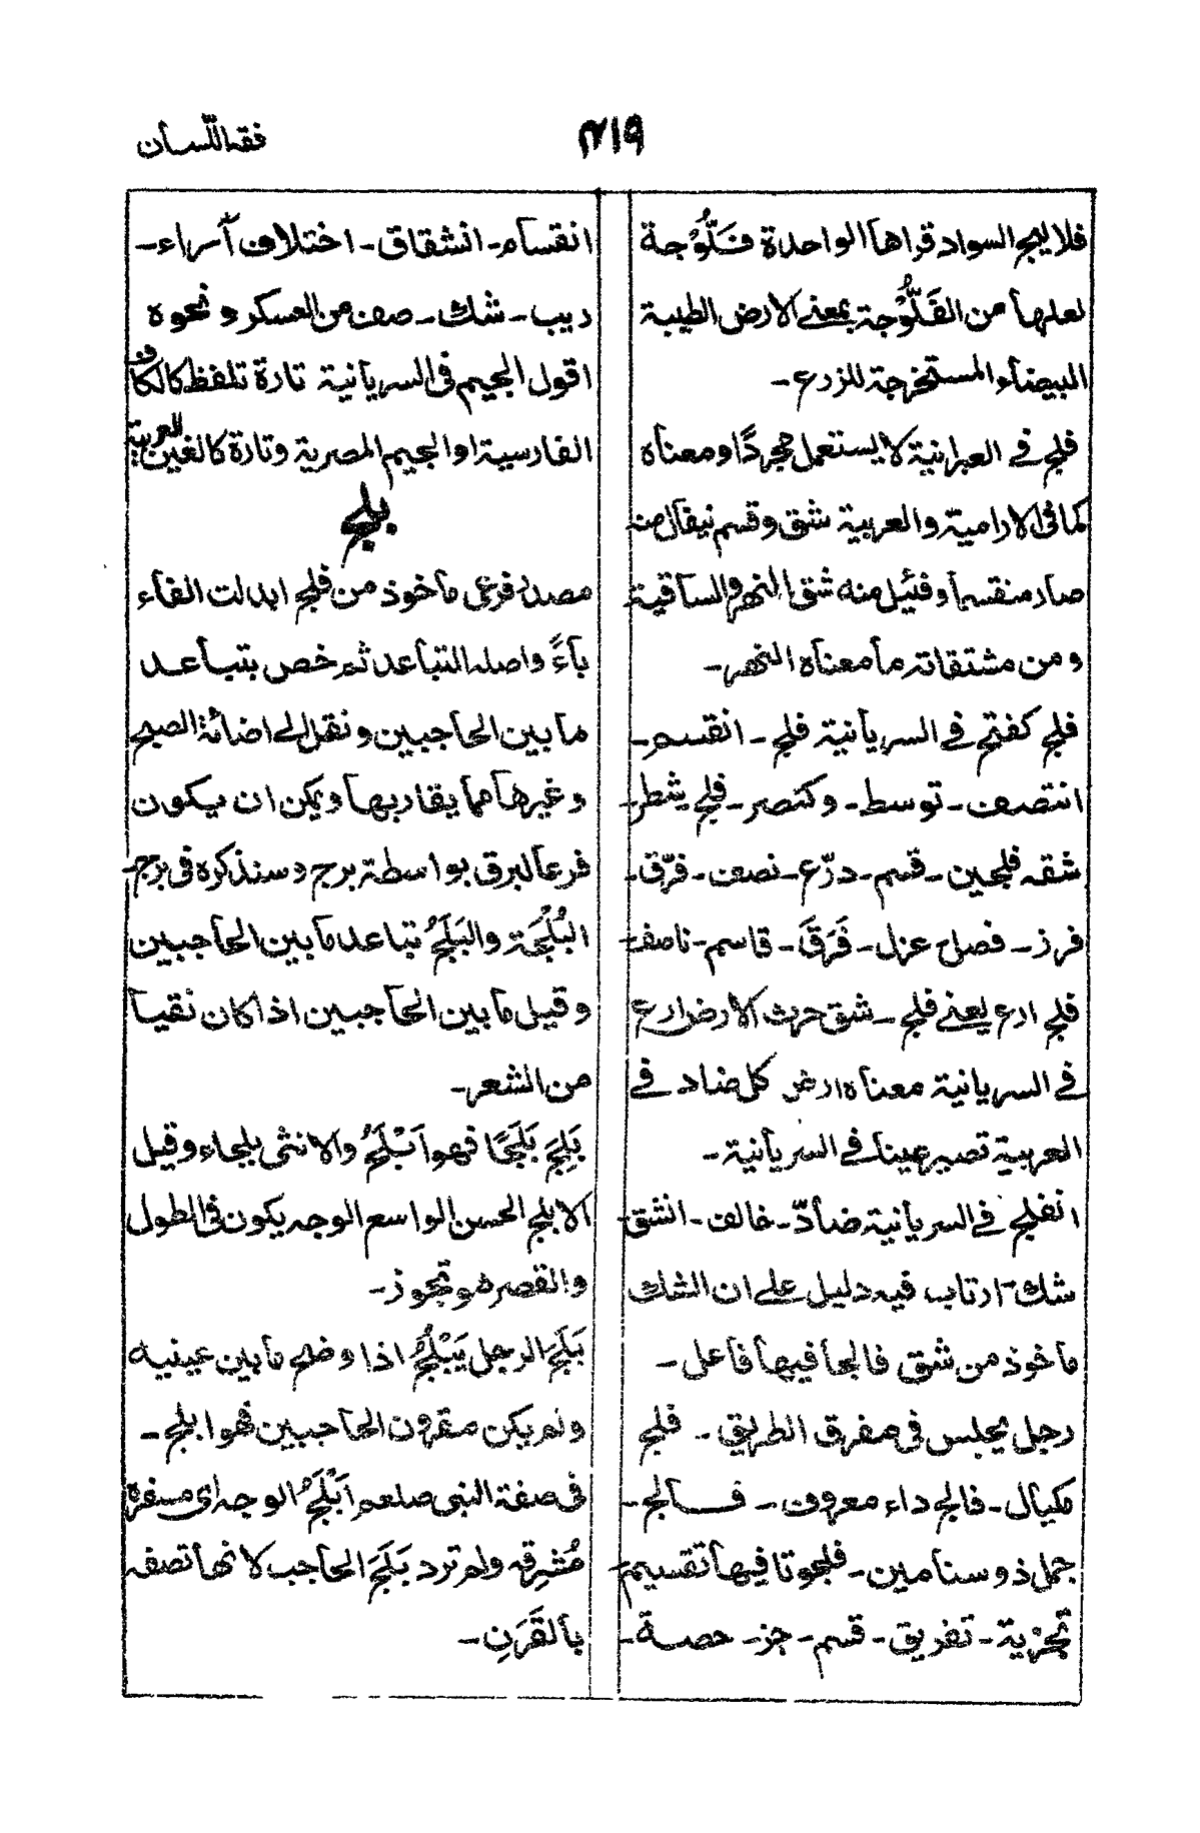 فقه اللسان
٢١٩
فلاليج السواد قراها الواحدة فَلُّوْجة
لعلها من الفَلُّوْجة بمعنے الارض الطيبة
البيضاء المستخرجة للزرع -
فلج في العبرانية لا يستعمل مجردًا ومعناه
كما فى الارامية والعربية شق وقسم نيفال منه
صار منقسما وفئيل منه شق النهر والساقية
ومن مشتقاته ما معناه النهر -
فلج كفتح في السريانية فلج - انقسم -
انتصف - توسط - وكنصر - فلج شطر -
شقه فلجين - قسم - درّع - نصف - فرّق -
فرز - فصل عزل - فَرَقَ - قاسم - ناصف -
فلج ارع يعنے فلج - شق حرث الارض ارع
في السريانية معناه ارض كل ضاد في
العربية تصير عينا في السريانية -
انفلج في السريانية ضادّ - خالف - انشق -
شك - ارتاب فيه دليل علے ان الشك
ماخوذ من شق فالجا فيها فاعل -
رجل يجلس فى مفرق الطريق - فلج
مكيال - فالج داء معروف - فالج -
جمل ذو سنامين - فلجوتا فيها تقسيم -
تجزية - تفريق - قسم - جز - حصة -
انقسام - انشقاق - اختلاف آراء -
ريب - شك - صف من العسكر ونحوه
اقول الجيم فى السريانية تارة تلفظ كالكاف
الفارسية او الجيم المصرية وتارة كالغين العربية
بلج
مصدر فرعى ماخوذ من فلج ابدلت الفاء
باءً واصله التباعد ثم خص بتباعد
ما بين الحاجبين ونقل الے اضائة الصبح
وغيرها مما يقاربها ويمكن ان يكون
فرعا لبرق بواسطة برج وسنذكره فى برج -
البُلْجَة والبَلَجُ تباعد ما بين الحاجبين
وقيل ما بين الحاجبين اذا كان نقيا
من الشعر -
بَلِجَ بَلَجًا فهو اَبْلَجُ والانثى بلجاء وقيل
الابلج الحسن الواسع الوجه يكون فى الطول
والقصر هو تجوز -
بَلَجَ الرجل يَبْلُجُ اذا وضح ما بين عينيه
ولم يكن مقرون الحاجبين فهو ابلج -
فى صفة النبى صلعم اَبْلَجُ الوجه اى مسفره
مُشرِقه ولم ترد بَلَجَ الحاجب لانها تصفه
بالقَرَنِ -